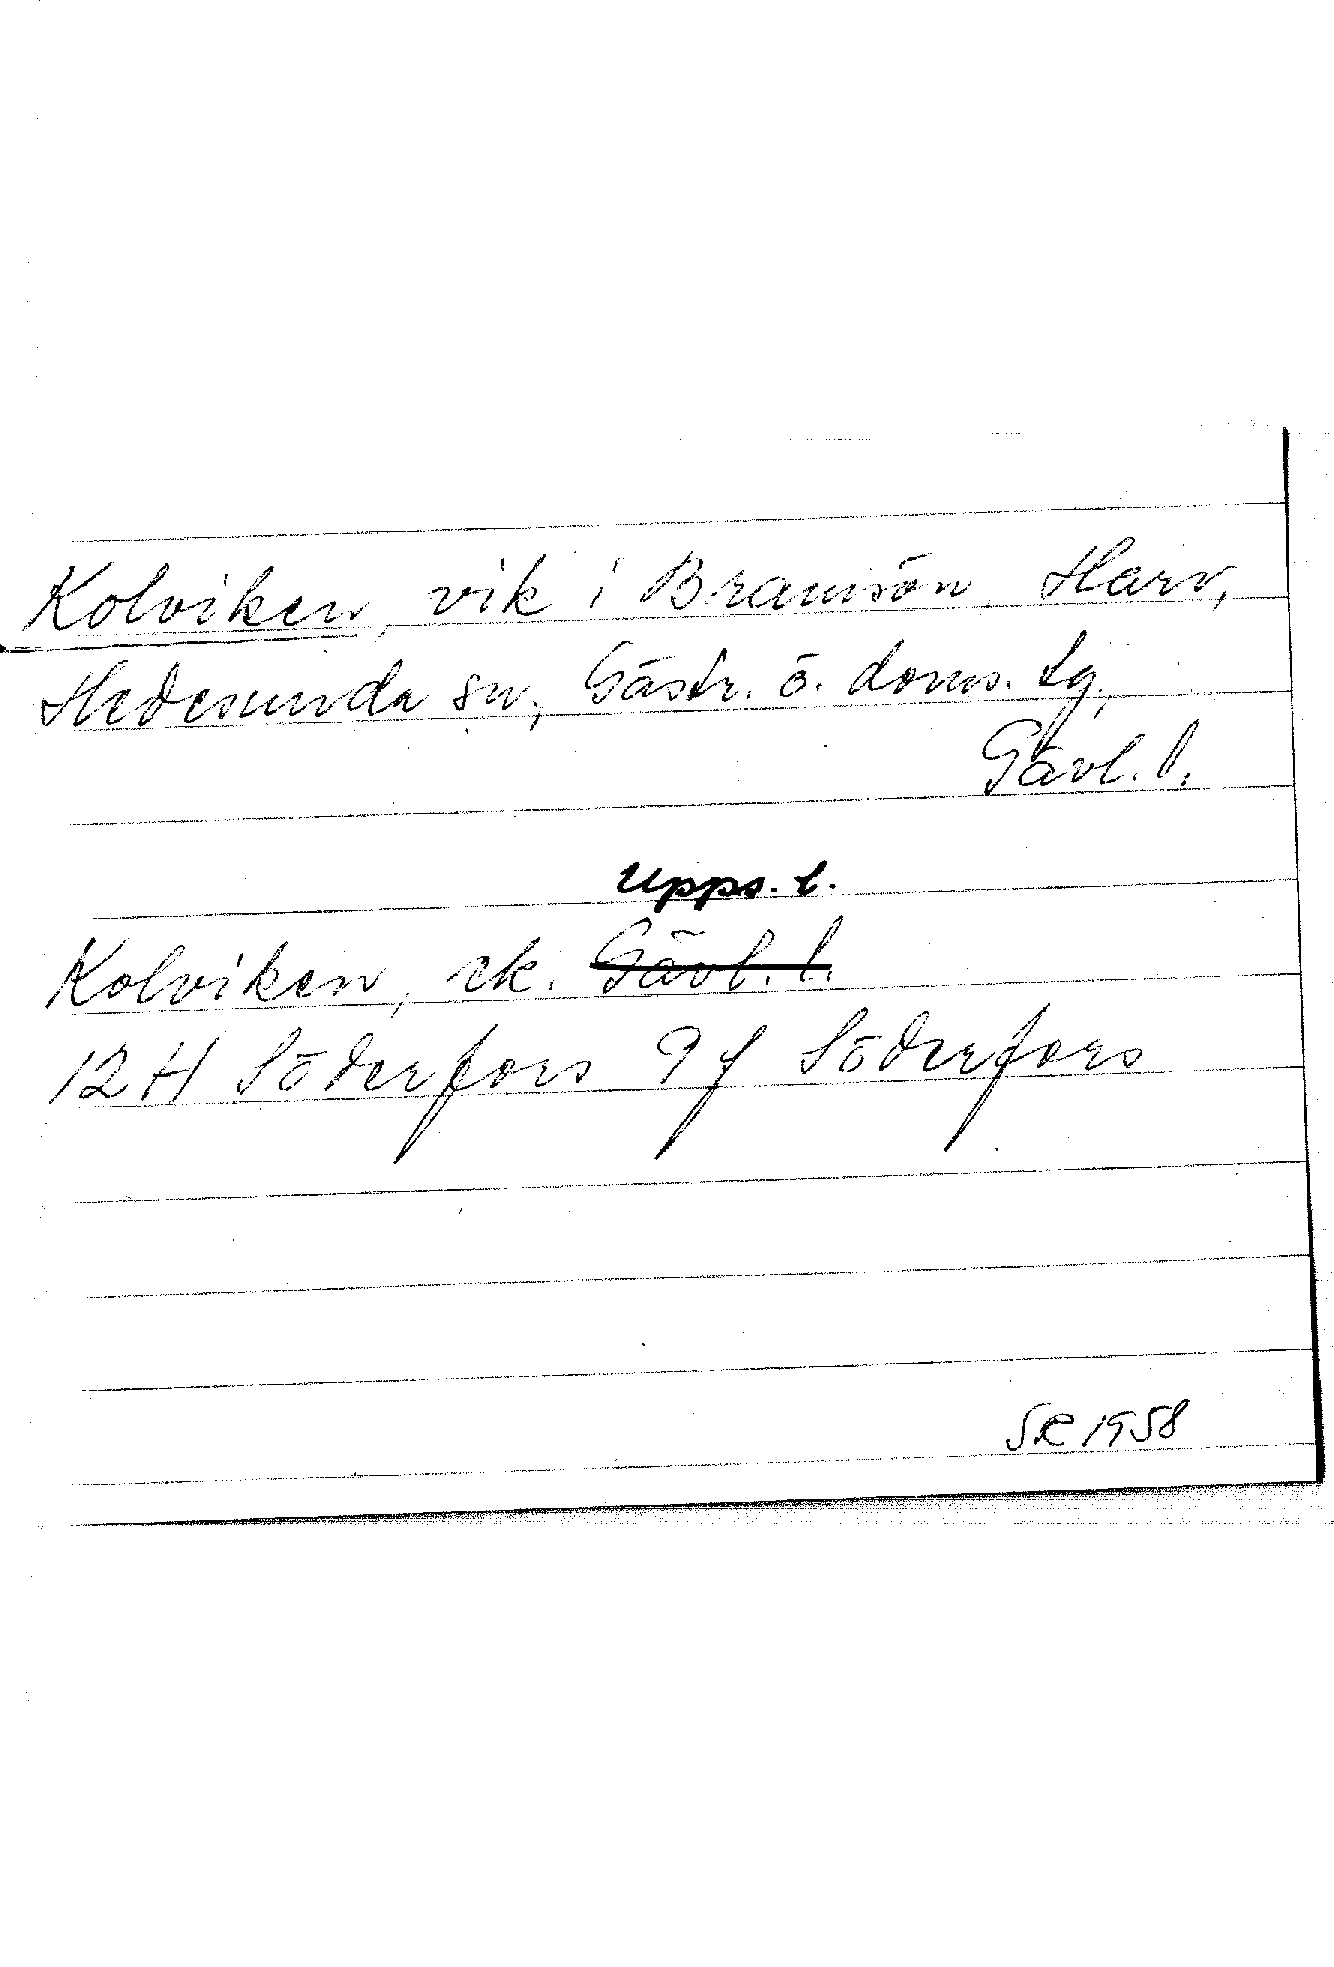 Kolviken, vik i Bramsön Harv,
Hedesunda sn, Gästr. ö. doms. tg,
Gävl. l.
Upps. l.
Kolviken, ek. Gävl. l.
12 H Söderfors 9 f Söderfors
SR 1958